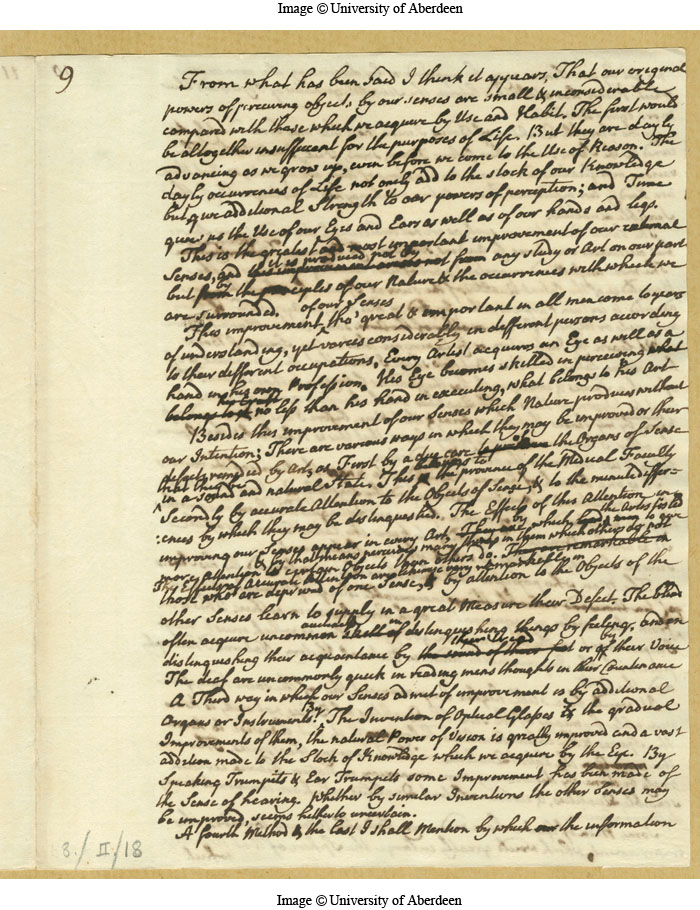 Image © University of Aberdeen
9
From what has been said I think it appears, That our original
powers of perceiving objects by our senses are small & inconsiderable
compared with those which we acquire by Use and Habit. The first would
be altogether insufficient for the purposes of Life. But they are dayly
advancing as we grow up, even before we come to the Use of Reason. The
dayly occurrences of Life not only add to the stock of our Knowledge
but give additional Strength to our powers of perception; and Time
gives us the Use of our Eyes and Ears as well as of our hands and legs.
This is the greatest and most important improvement of our external
it is produced not by
Senses, and any study or Art on our part
by
but the principles of our Nature & the occurrences with which we
are surrounded.
of our Senses
This improvement, tho' great & important in all men come to years
of understanding, yet varies considerably in different persons according
to their different occupations. Every Artist acquires an Eye as well as a
hand in his own Profession. His Eye becomes skilled in perceiving what
belongs to no less than his hand in executing, what belongs to his Art
Besides this improvement of our Senses which Nature produces without
our Intention; There are various ways in which they may be improved or their
defects remedied by Art, as First by a due care the Organs of Sense
that they be
in a sound and natural State. This belongs to the province of the Medical Faculty
Secondly by accurate Attention to the Objects of Sense & to the minute differ-
:ences by which they may be distinguished. The Effects of this Attention in
improving our Senses appear in every Art, by which the Artist
more attention to certain Objects than others do & by that means perceives many things in them which others do not
those who are deprived of one Sense, by attention to the Objects of the
other Senses learn to supply in a great Measure their Defect. The blind
often acquire uncommon in distinguishing things by feeling, and in
distinguishing their acquaintance by or by their Voice
The deaf are uncommonly quick in reading mens thoughts in their Countenance
A Third way in which our Senses admit of improvement is by additional
Organs or Instruments. By The Invention of Optical Glasses & the gradual
Improvements of them, the natural Power of Vision is greatly improved and a vast
addition made to the Stock of Knowledge which we acquire by the Eye. By
Speaking Trumpets & Ear Trumpets some Improvement has been made of
the Sense of hearing. Whether by similar Inventions the other Senses may
be improved, seems hitherto uncertain.
A fourth Method & the last I shall Mention by which our the information
3./II/18
Image © University of Aberdeen